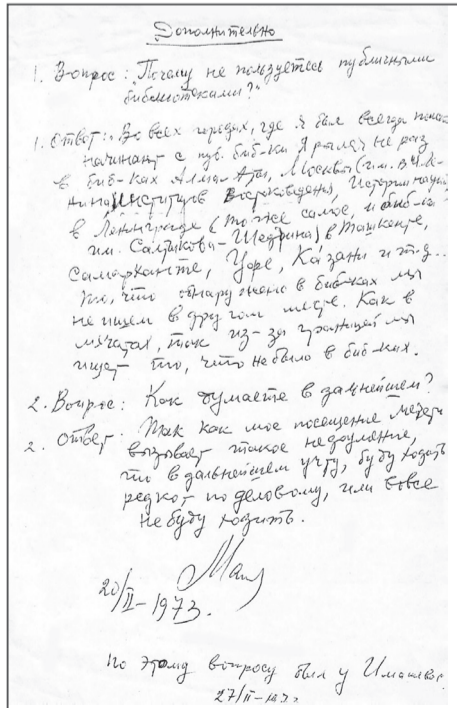 Дополнительно
1. Вопрос: "Почему не пользуетесь публичными
библиотеками?"
1. Ответ: Во всех городах, где я был всегда
начинают с пуб. биб-ки Я рылся не раз
в биб-ках Алма-Аты, Москвы (им. В.И. Ле-
нина Институтов Востоковедения, Истории
в Ленинграде (то же самое, и биб-ка
им. Салтыкова-Щедрина) в Ташкенте,
Самарканте, Уфе, Казани и т.д..
То, что обнаружено в биб-ках мы
не ищем в другом месте. Как в
мечетях, так из-за границей мы
ищет то, что не было в биб-ках.
2. Вопрос: Как думаете в дальнейшем?
2. Ответ. Так как мое посещение мечети
вызывает такое недоумение,
то в дальнейшем учту, буду ходить
редкот по деловому, или вовсе
не буду ходить.
20/II-1973.
По этому вопросу был у
27/II-